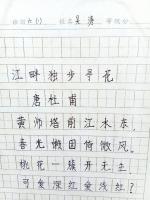 班级六(1) 姓名吴涛 等级分
江畔独步寻花
唐杜甫
黄师塔前江水东,
春光懒困倚微风。
桃花一簇开无主,
可爱深红爱浅红?